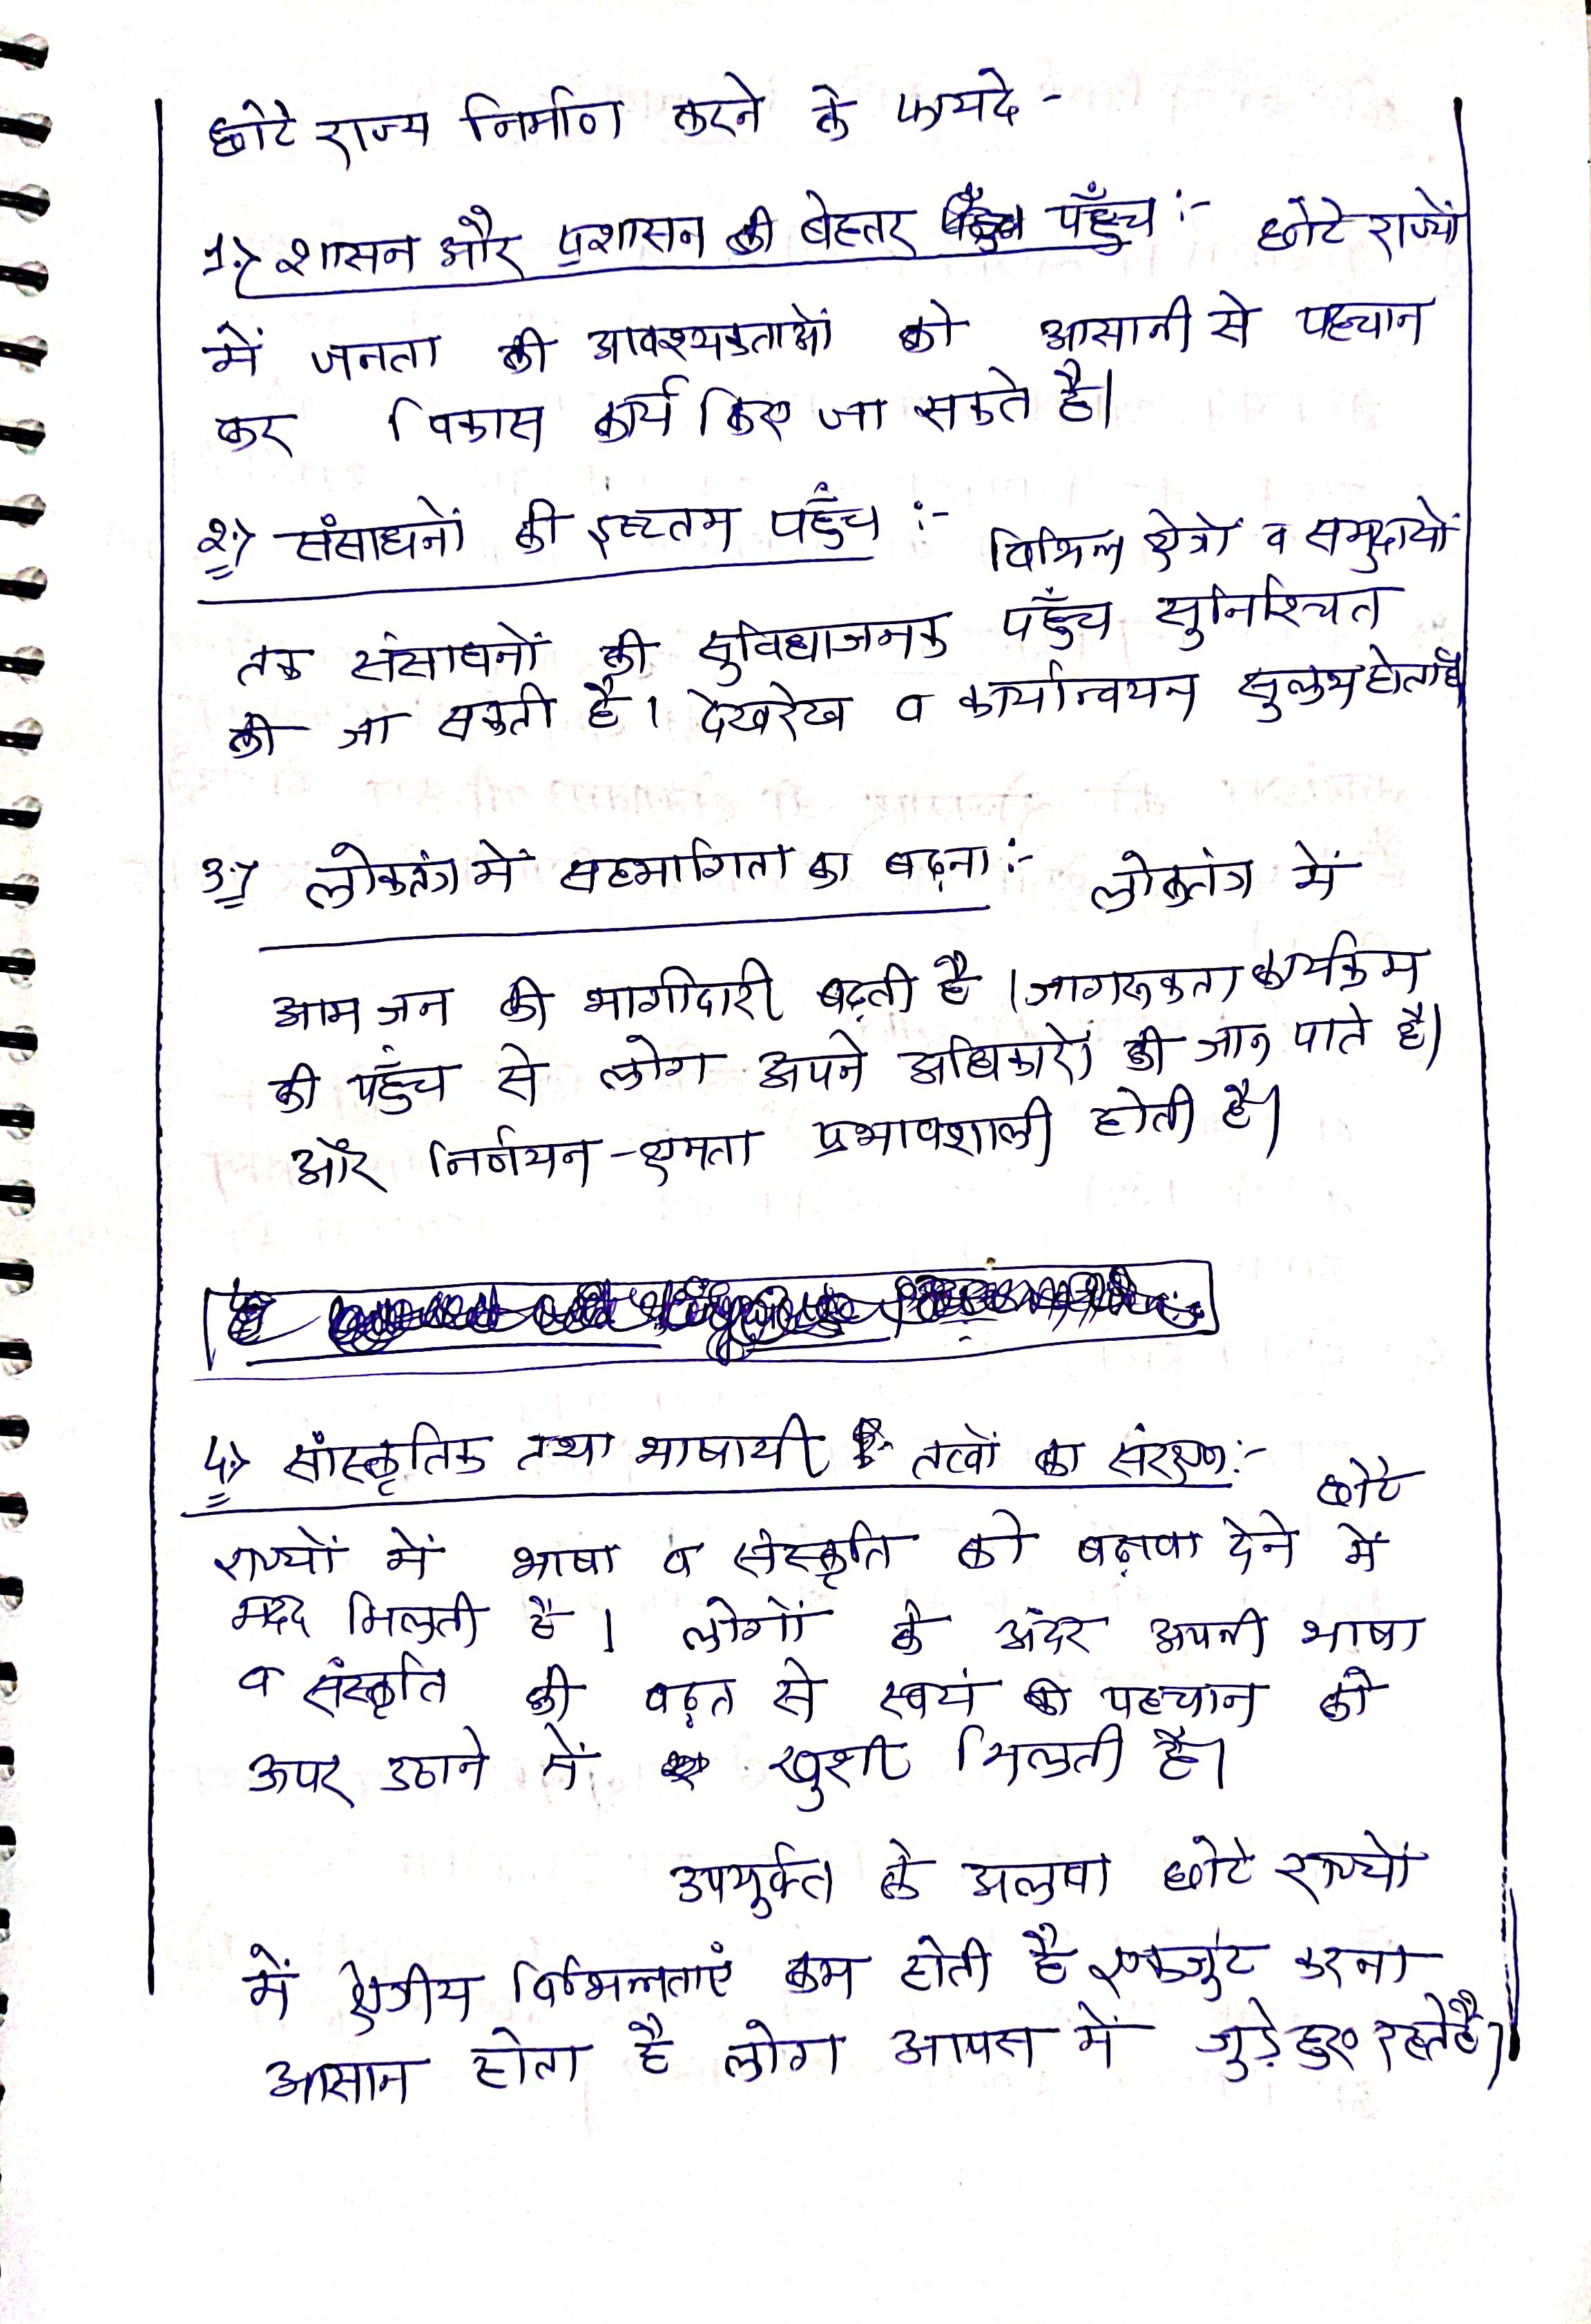 छोटे राज्य निर्माण करने के फायदे -
1.> शासन और प्रशासन की बेहतर पहुँच :- छोटे राज्यों
में जनता की आवश्यकताओं को आसानी से पहचान
कर विकास कार्य किए जा सकते है।
2.> संसाधनों की इष्टतम पहुँच :- विभिन्न क्षेत्रों व समुदायों
तक संसाधनों की सुविधाजनक पहुँच सुनिश्चित
की जा सकती है। देखरेख व कार्यान्वयन सुलभ होता है
3.> लोकतंत्र में सहभागिता का बढ़ना :- लोकतंत्र में
आम जन की भागीदारी बढ़ती है। जागरूकता कार्यक्रम
की पहुँच से लोग अपने अधिकारों को जान पाते है।
और निर्णयन-क्षमता प्रभावशाली होती है।
4.> सांस्कृतिक तथा भाषायी तत्वों का संरक्षण :- छोटे
राज्यों में भाषा व संस्कृति को बढ़ावा देने में
मदद मिलती है। लोगों के अंदर अपनी भाषा
व संस्कृति की बढ़त से स्वयं की पहचान को
ऊपर उठाने में खुशी मिलती है।
उपर्युक्त के अलावा छोटे राज्यों
में क्षेत्रीय विभिन्नताएं कम होती है एकजुट करना
आसान होता है लोग आपस में जुड़े हुए रहते है।